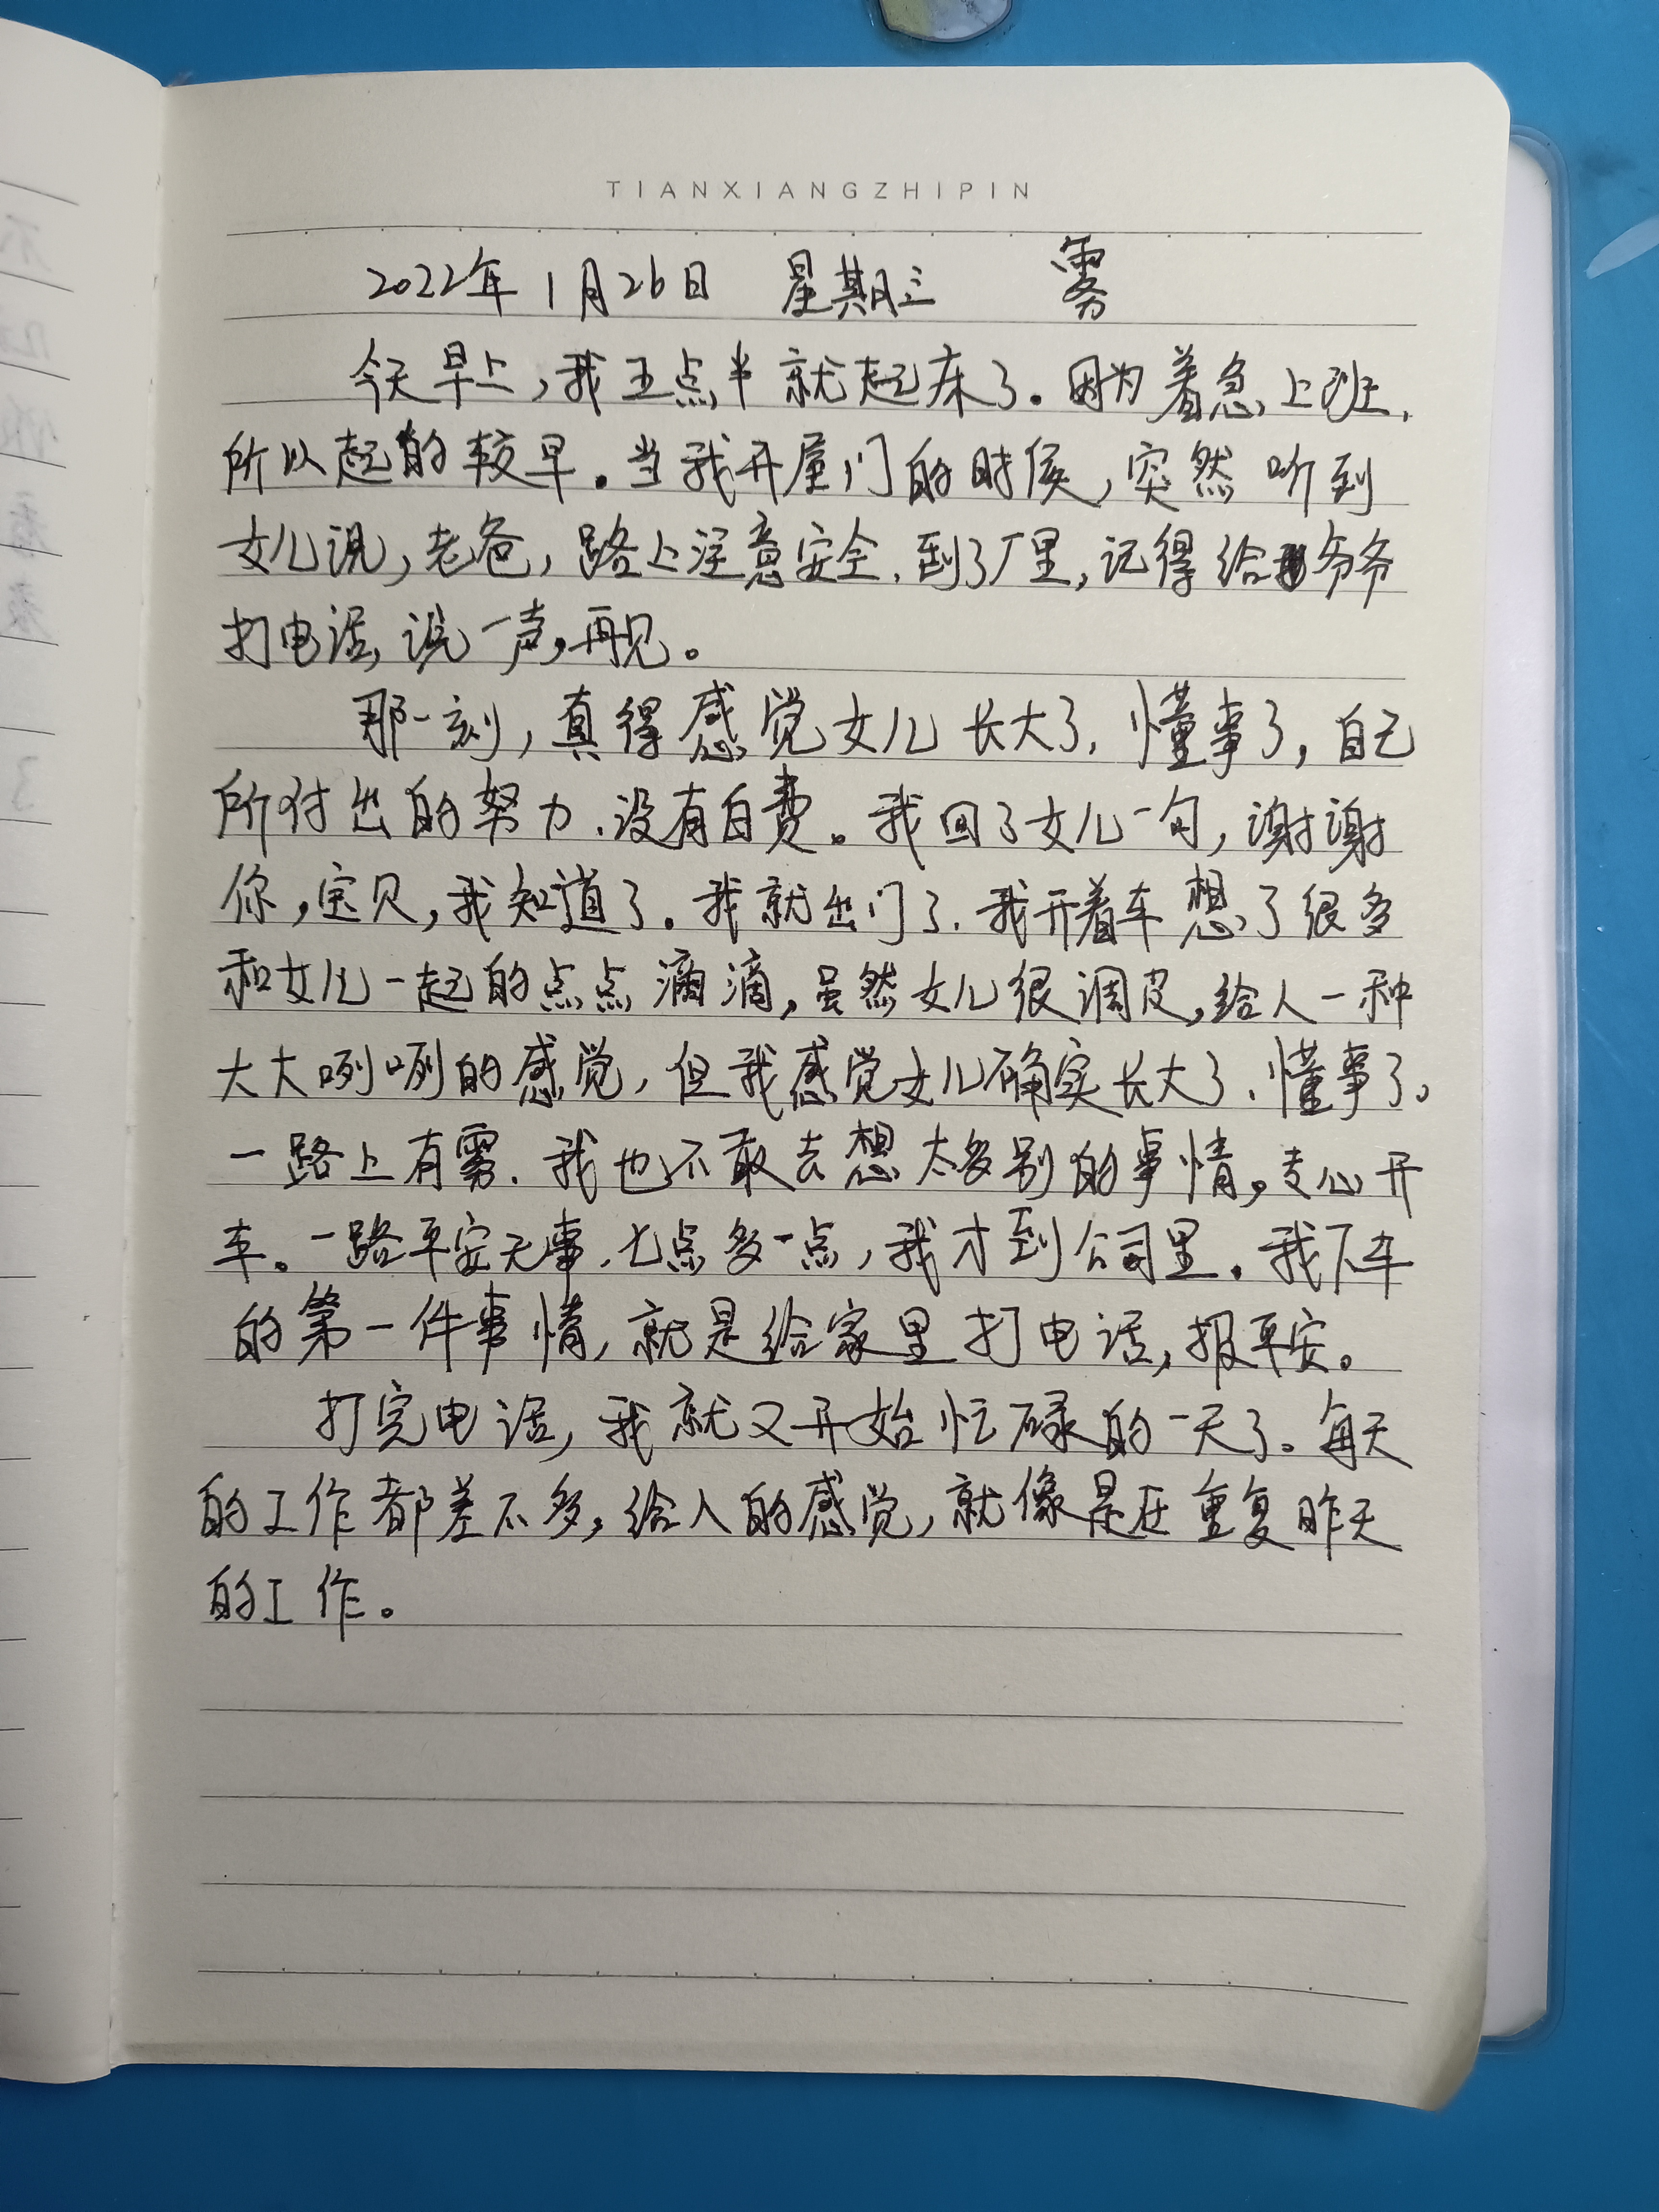 TIANXIANGZHIPIN
2022年1月26日 星期三 雾
今天早上,我五点半就起床了。因为着急上班,
所以起的较早。当我开屋门的时候,突然听到
女儿说,老爸,路上注意安全,到了厂里,记得给爷爷
打电话,说一声,再见。
那一刻,真得感觉女儿长大了,懂事了,自己
所付出的努力,没有白费。我回了女儿一句,谢谢
你,宝贝,我知道了。我就出门了,我开着车想了很多
和女儿一起的点点滴滴,虽然女儿很调皮,给人一种
大大咧咧的感觉,但我感觉女儿确实长大了,懂事了。
一路上有雾,我也不敢去想太多别的事情,专心开
车。一路平安无事,七点多一点,我才到公司里。我下车
的第一件事情,就是给家里打电话,报平安。
打完电话,我就又开始忙碌的一天了。每天
的工作都差不多,给人的感觉,就像是在重复昨天
的工作。